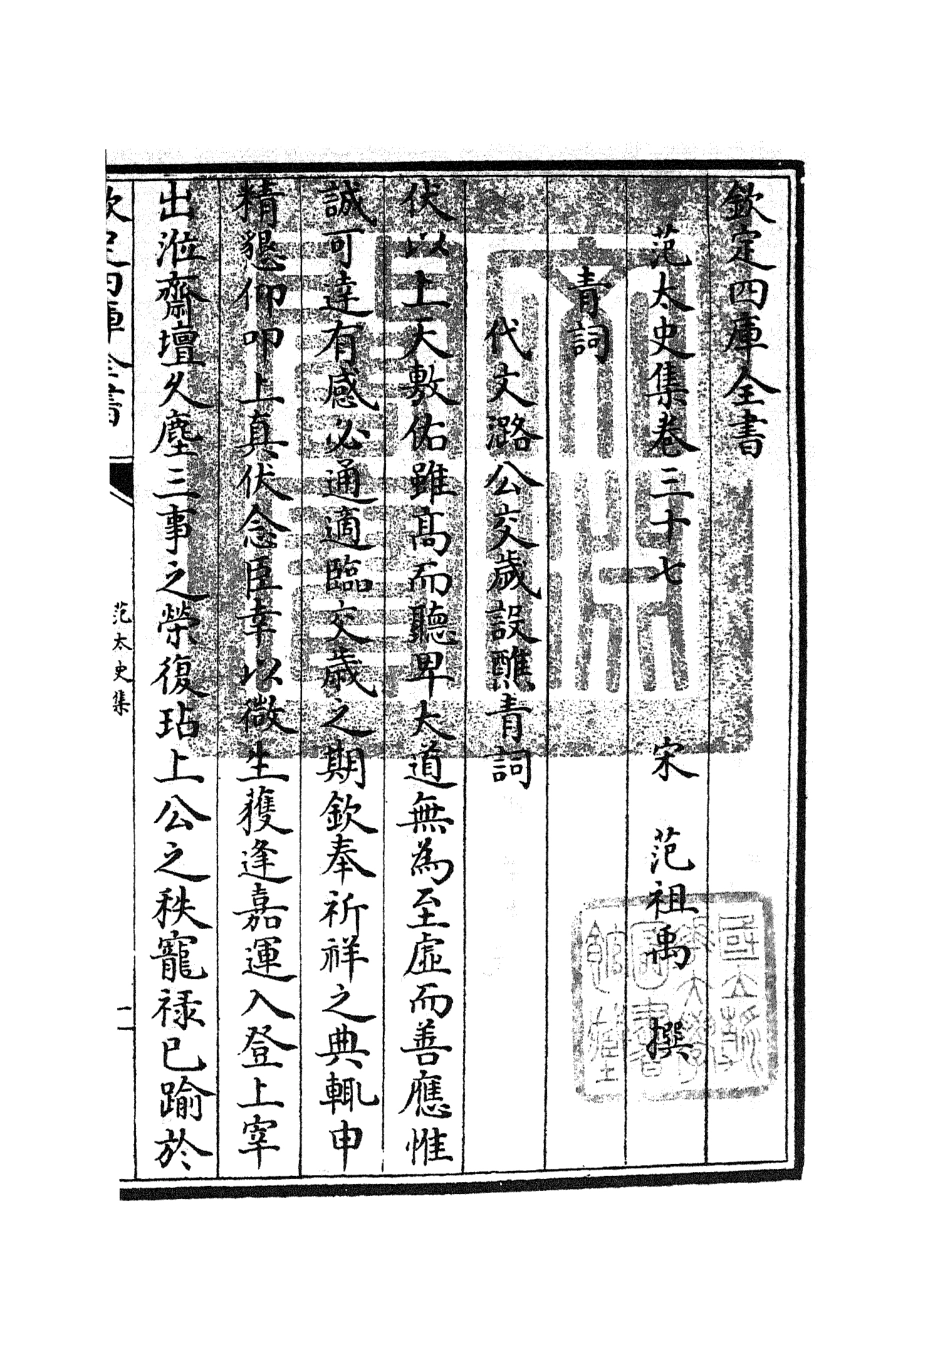 欽定四庫全書
范太史集卷三十七
宋 范祖禹 撰
青詞
代文潞公交歲設醮青詞
伏以上天敷佑雖髙而聽卑大道無為至虛而善應惟
誠可達有感必通適臨交歲之期欽奉祈祥之典輒申
精懇仰叩上真伏念臣幸以微生獲逢嘉運入登上宰
出涖齋壇久塵三事之榮復玷上公之秩寵禄已踰於
欽定四庫全書
范太史集
一